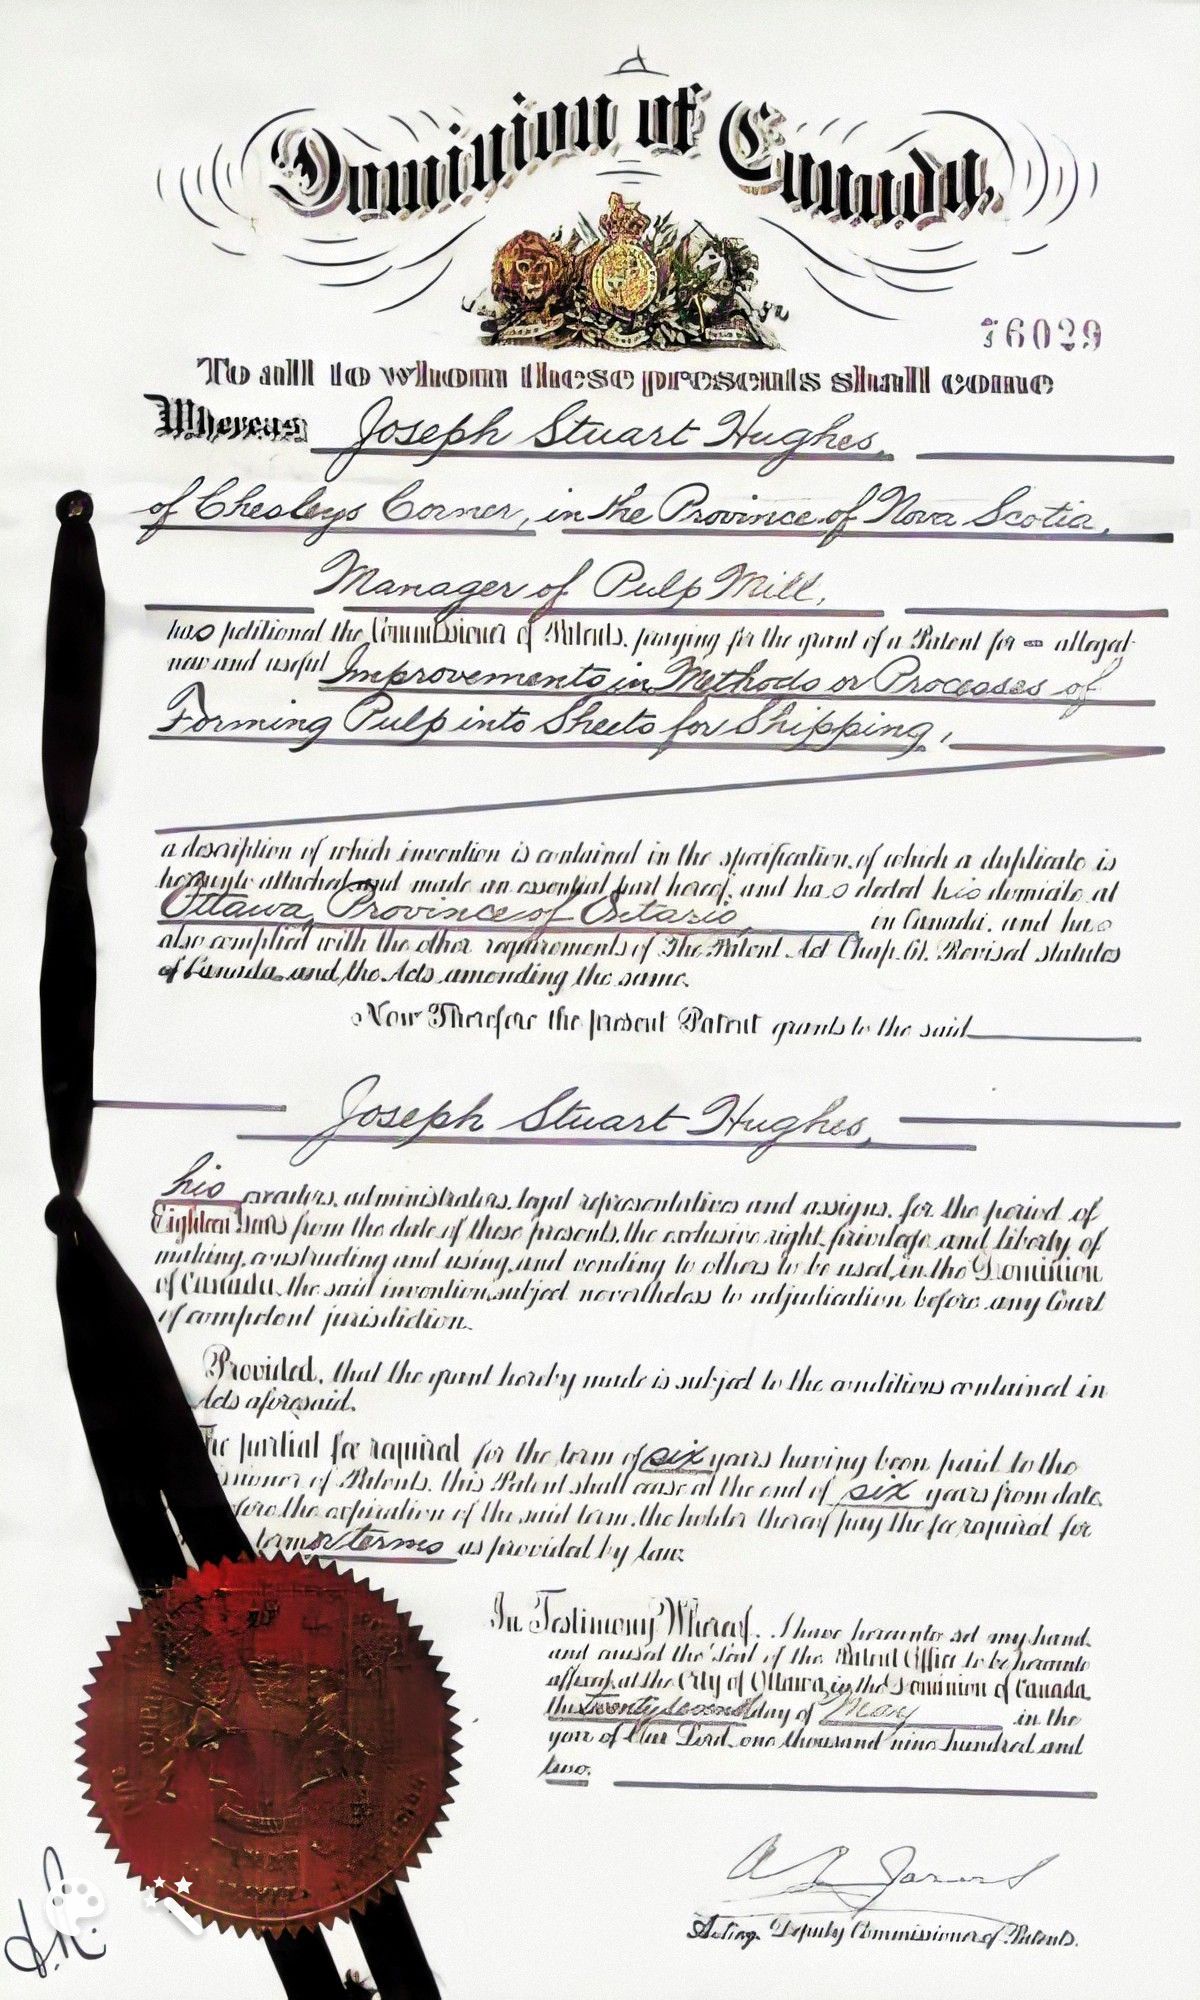 Dominion of Canada.
76029
To all to whom these presents shall come
Whereas Joseph Stuart Hughes,
of Chesleys Corner, in the Province of Nova Scotia,
Manager of Pulp Mill,
has petitioned the Commissioner of Patents, praying for the grant of a Patent for alleged
new and useful Improvements in Methods or Processes of
Forming Pulp into Sheets for Shipping,
a description of which invention is contained in the specification, of which a duplicate is
hereunto attached and made an essential part hereof, and has elected his domicile at
Ottawa, Province of Ontario, in Canada, and has
also complied with the other requirements of The Patent Act Chap. 61. Revised statutes
of Canada, and the Acts amending the same.
Now Therefore the present Patent grants to the said
Joseph Stuart Hughes,
his executors, administrators, legal representatives and assigns, for the period of
Eighteen years from the date of these presents, the exclusive right, privilege and liberty of
making, constructing and using, and vending to others to be used, in the Dominion
of Canada, the said invention, subject nevertheless to adjudication before any Court
of competent jurisdiction.
Provided, that the grant hereby made is subject to the conditions contained in
Acts aforesaid.
The partial fee required for the term of six years having been paid to the
issioner of Patents, this Patent shall cease at the end of six years from date,
fore the expiration of the said term, the holder thereof pay the fee required for
term or terms as provided by law.
In Testimony Whereof, I have hereunto set my hand
and caused the Seal of the Patent Office to be hereunto
affixed, at the City of Ottawa, in the Dominion of Canada,
this twenty second day of May in the
year of Our Lord, one thousand nine hundred and
two.
Acting Deputy Commissioner of Patents.